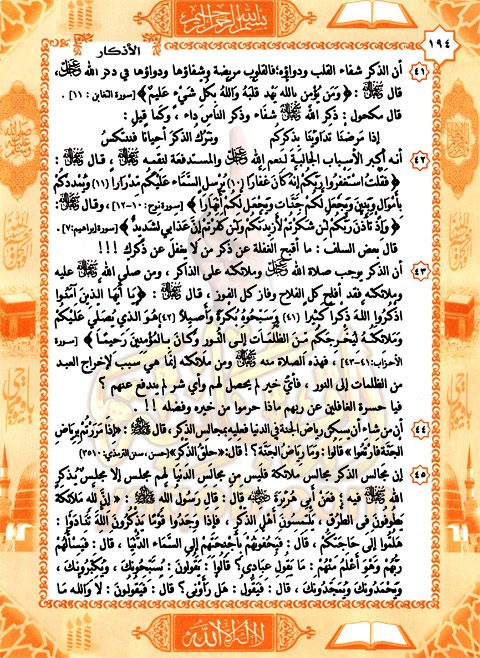 بسم الله الرحمن الرحيم
الأذكار
١٩٤
٤١ أن الذكر شفاء القلب ودواؤه؛ فالقلوب مريضة وشفاؤها ودواؤها في ذكر الله ﷻ،
قال ﷻ : ﴿ وَمَن يُؤْمِن بِاللَّهِ يَهْدِ قَلْبَهُ وَاللَّهُ بِكُلِّ شَيْءٍ عَلِيمٌ ﴾ [سورة التغابن : ١١] .
قال مكحول : ذكر الله ﷻ شفاء وذكر الناس داء ، وكما قيل :
إذا مَرِضنَا تَدَاوَيْنَا بذِكرِكُم وَنَتْرُك الذِكرَ أحيَاناً فَنَنتَكِسُ
٤٢ أنه أكبر الأسباب الجالبة لنعم الله ﷻ والمستدفعة لنقمه ﷻ ، قال ﷻ :
﴿ فَقُلْتُ اسْتَغْفِرُوا رَبَّكُمْ إِنَّهُ كَانَ غَفَّارًا (١٠) يُرْسِلِ السَّمَاءَ عَلَيْكُم مِّدْرَارًا (١١) وَيُمْدِدْكُم
بِأَمْوَالٍ وَبَنِينَ وَيَجْعَل لَّكُمْ جَنَّاتٍ وَيَجْعَل لَّكُمْ أَنْهَارًا ﴾ [سورة نوح: ١٠-١٢] ، وقال ﷻ:
﴿ وَإِذْ تَأَذَّنَ رَبُّكُمْ لَئِن شَكَرْتُمْ لأَزِيدَنَّكُمْ وَلَئِن كَفَرْتُمْ إِنَّ عَذَابِي لَشَدِيدٌ ﴾ [سورة إبراهيم:٧] .
قال بعض السلف : ما أقبح الغفلة عن ذكر من لا يغفل عن ذكرك !!!
٤٣ أن الذكر يوجب صلاة الله ﷻ وملائكته على الذاكر ، ومن صلى الله ﷻ عليه
وملائكته فقد أفلح كل الفلاح وفاز كل الفوز ، قال ﷻ : ﴿ يَا أَيُّهَا الَّذِينَ آمَنُوا
اذْكُرُوا اللَّهَ ذِكْرًا كَثِيرًا (٤١) وَسَبِّحُوهُ بُكْرَةً وَأَصِيلاً (٤٢) هُوَ الَّذِي يُصَلِّي عَلَيْكُمْ
وَمَلَائِكَتُهُ لِيُخْرِجَكُم مِّنَ الظُّلُمَاتِ إِلَى النُّورِ وَكَانَ بِالْمُؤْمِنِينَ رَحِيمًا ﴾ [سورة
الأحزاب: ٤١-٤٣] ، فهذه الصلاة منه ﷻ ومن ملائكته إنما هي سبب لإخراج العبد
من الظلمات إلى النور ، فأي خير لم يحصل لهم وأي شر لم يندفع عنهم ؟
فيا حسرة الغافلين عن ربهم ماذا حرموا من خيره وفضله !!! .
٤٤ أن من شاء أن يسكن رياض الجنة في الدنيا فعليه بمجالس الذكر ، قال ﷺ: «إذَا مَرَرْتُمْ بِرِيَاضِ
الجَنَّةِ فَارْتَعُوا» قالوا: وَمَا رِيَاضُ الجَنَّةِ؟ ! قال: «حِلَقُ الذِّكْرِ» [حسن، سنن الترمذي: ٣٥١٠] .
٤٥ إن مجالس الذكر مجالس ملائكة فليس من مجالس الدنيا لهم مجلس إلا مجلس يُذكر
الله ﷻ فيه ؛ فعن أبي هُرَيْرَةَ ﷺ قَالَ : قَالَ رَسُولُ اللهِ ﷺ : « إِنَّ لله مَلَائِكَةً
يَطُوفُونَ فِي الطُّرُقِ ، يَلْتَمِسُونَ أَهْلَ الذِّكْرِ ، فَإِذَا وَجَدُوا قَوْمًا يَذْكُرُونَ اللَّهَ تَنَادَوْا :
هَلُمُّوا إِلَى حَاجَتِكُمْ ، قَالَ : فَيَحُفُّونَهُمْ بِأَجْنِحَتِهِمْ إِلَى السَّمَاءِ الدُّنْيَا ، قَالَ : فَيَسْأَلُهُمْ
رَبُّهُمْ وَهُوَ أَعْلَمُ مِنْهُمْ : مَا يَقُولُ عِبَادِي؟ قَالُوا : يَقُولُونَ : يُسَبِّحُونَكَ ، وَيُكَبِّرُونَكَ ،
وَيَحْمَدُونَكَ ، وَيُمَجِّدُونَكَ ، قَالَ : فَيَقُولُ : هَلْ رَأَوْنِي؟ قَالَ : فَيَقُولُونَ : لَا وَاللهِ مَا
لا إله إلا الله